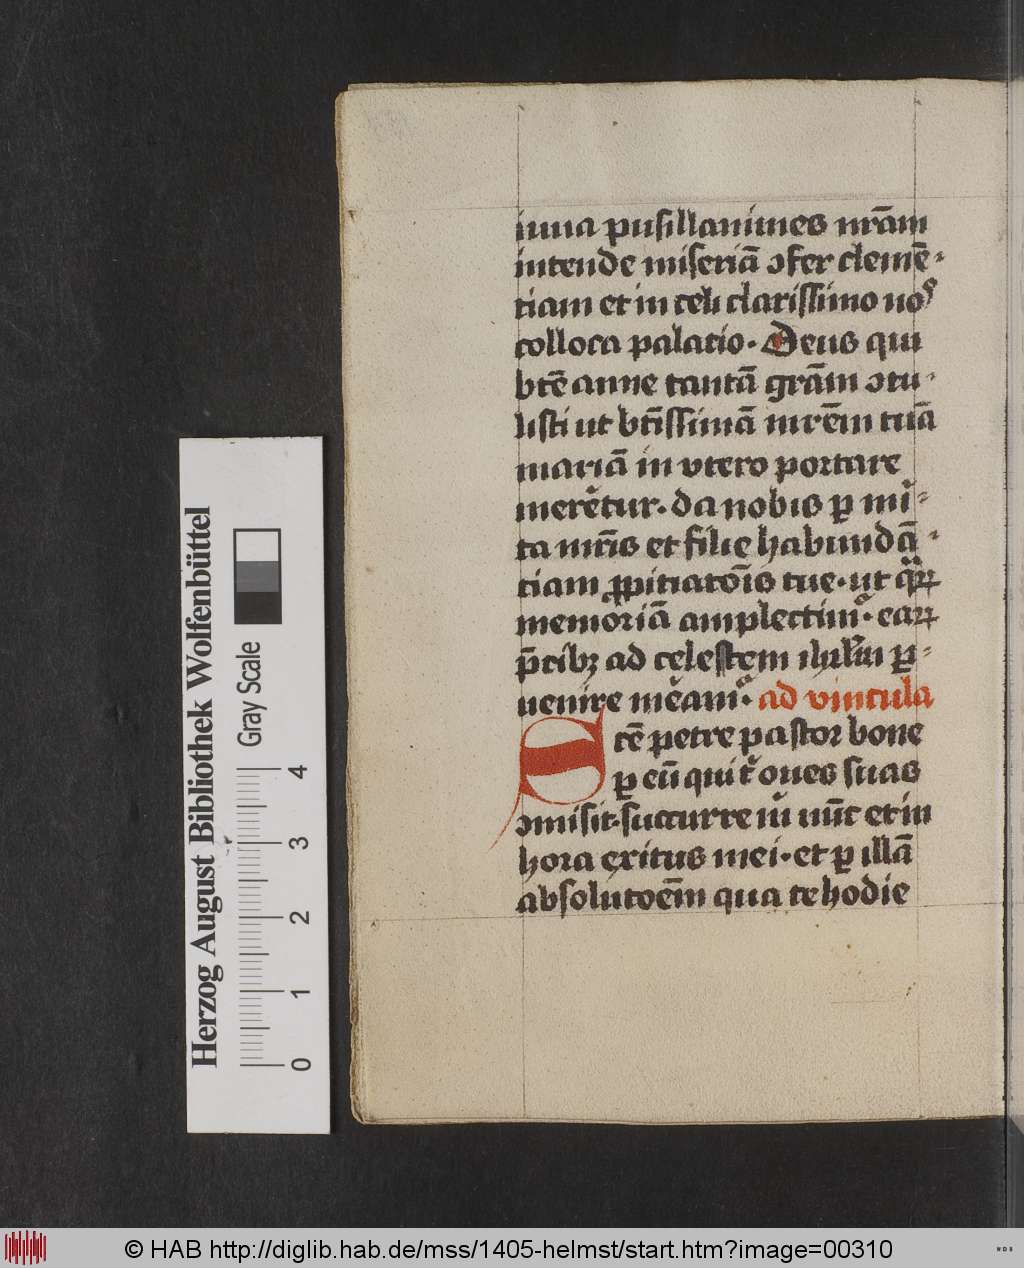 iuua pusillanimes nr̄am
intende miseriā ɔfer clemē-
tiam et in celi clarissimo no⁹
colloca palatio. Deus qui
btē anne tantā grām ɔtu-
listi ut bt̄issimā mrēm tuā
mariā in vtero portare
merētur. da nobis ꝑ mi̓-
ta mr̄is et filie habundā-
tiam ꝓpitiatōis tue. ut qͣꝝ
memoriā amplectim⁹. eaꝝ
p̄cibꝫ ad celestem ihrl̓m ꝑ-
uenire mēam⁹. ad vincula
Scē petre pastor bone
ꝑ eū qui t̓ oues suas
ɔmisit. succurre m̓ nūc et in
hora exitus mei. et ꝑ illā
absolutoēm qua te hodie
Herzog August Bibliothek Wolfenbüttel
Gray Scale
0 1 2 3 4
© HAB http://diglib.hab.de/mss/1405-helmst/start.htm?image=00310